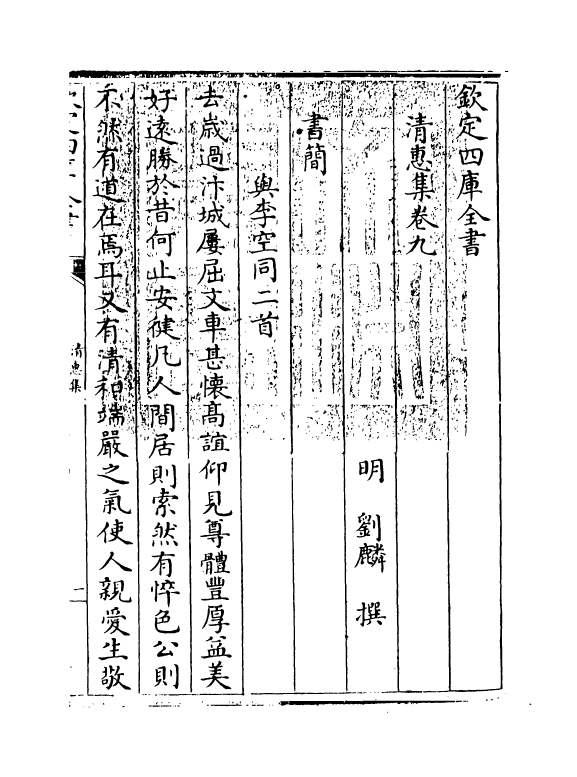 欽定四庫全書
清惠集卷九
明 劉麟 撰
書簡
與李空同二首
去歳過汴城屢屈文車甚懐髙誼仰見尊體豐厚益美
好遠勝於昔何止安健凡人間居則索然有悴色公則
不然有道在焉耳又有清和端嚴之氣使人親愛生敬
清惠集